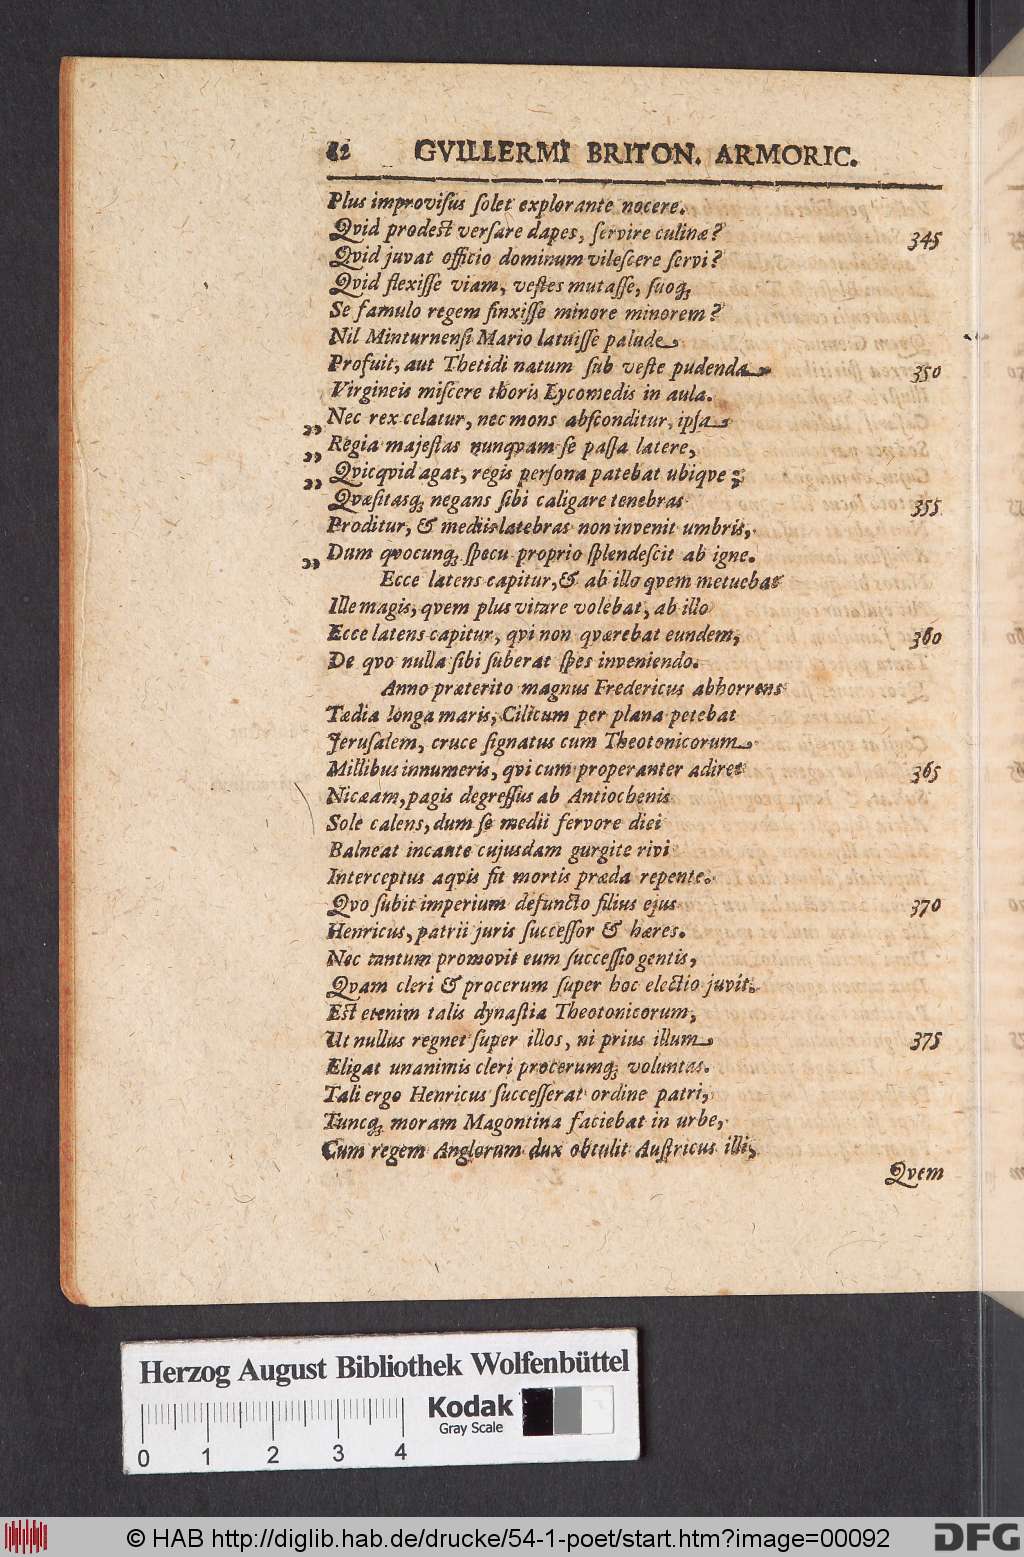 82 GVILLERMI BRITON. ARMORIC.
Plus improviſus ſolet explorante nocere.
Qvid prodeſt verſare dapes, ſervire culinæ? 345
Qvid juvat officio dominum vileſcere ſervi?
Qvid flexiſſe viam, veſtes mutaſſe, ſuoq;
Se famulo regem finxiſſe minore minorem?
Nil Minturnenſi Mario latuiſſe palude
Profuit, aut Thetidi natum ſub veſte pudenda 350
Virgineis miſcere thoris Lycomedis in aula.
„ Nec rex celatur, nec mons abſconditur, ipſa
„ Regia majeſtas nunqvam ſe paſſa latere,
„ Qvicqvid agat, regis perſona patebat ubiqve;
Qvæſitasq; negans ſibi caligare tenebras 355
Proditur, & mediis latebras non invenit umbris,
„ Dum qvocunq; ſpecu proprio ſplendeſcit ab igne.
Ecce latens capitur, & ab illo qvem metuebat
Ille magis, qvem plus vitare volebat, ab illo
Ecce latens capitur, qvi non qværebat eundem, 360
De qvo nulla ſibi ſuberat ſpes inveniendo.
Anno præterito magnus Fredericus abhorrens
Tædia longa maris, Cilicum per plana petebat
Jeruſalem, cruce ſignatus cum Theotonicorum
Millibus innumeris, qvi cum properanter adiret 365
Nicæam, pagis degreſſus ab Antiochenis
Sole calens, dum ſe medii fervore diei
Balneat incaute cujusdam gurgite rivi
Interceptus aqvis fit mortis præda repente.
Qvo ſubit imperium defuncto filius ejus 370
Henricus, patrii juris ſucceſſor & hæres.
Nec tantum promovit eum ſucceſſio gentis,
Qvam cleri & procerum ſuper hoc electio juvit.
Eſt etenim talis dynaſtia Theotonicorum,
Ut nullus regnet ſuper illos, ni prius illum 375
Eligat unanimis cleri procerumq; voluntas.
Tali ergo Henricus ſucceſſerat ordine patri,
Tuncq; moram Magontina faciebat in urbe,
Cum regem Anglorum dux obtulit Auſtricus illi,
Qvem
Herzog August Bibliothek Wolfenbüttel
Kodak
Gray Scale
0 1 2 3 4
© HAB http://diglib.hab.de/drucke/54-1-poet/start.htm?image=00092
DFG